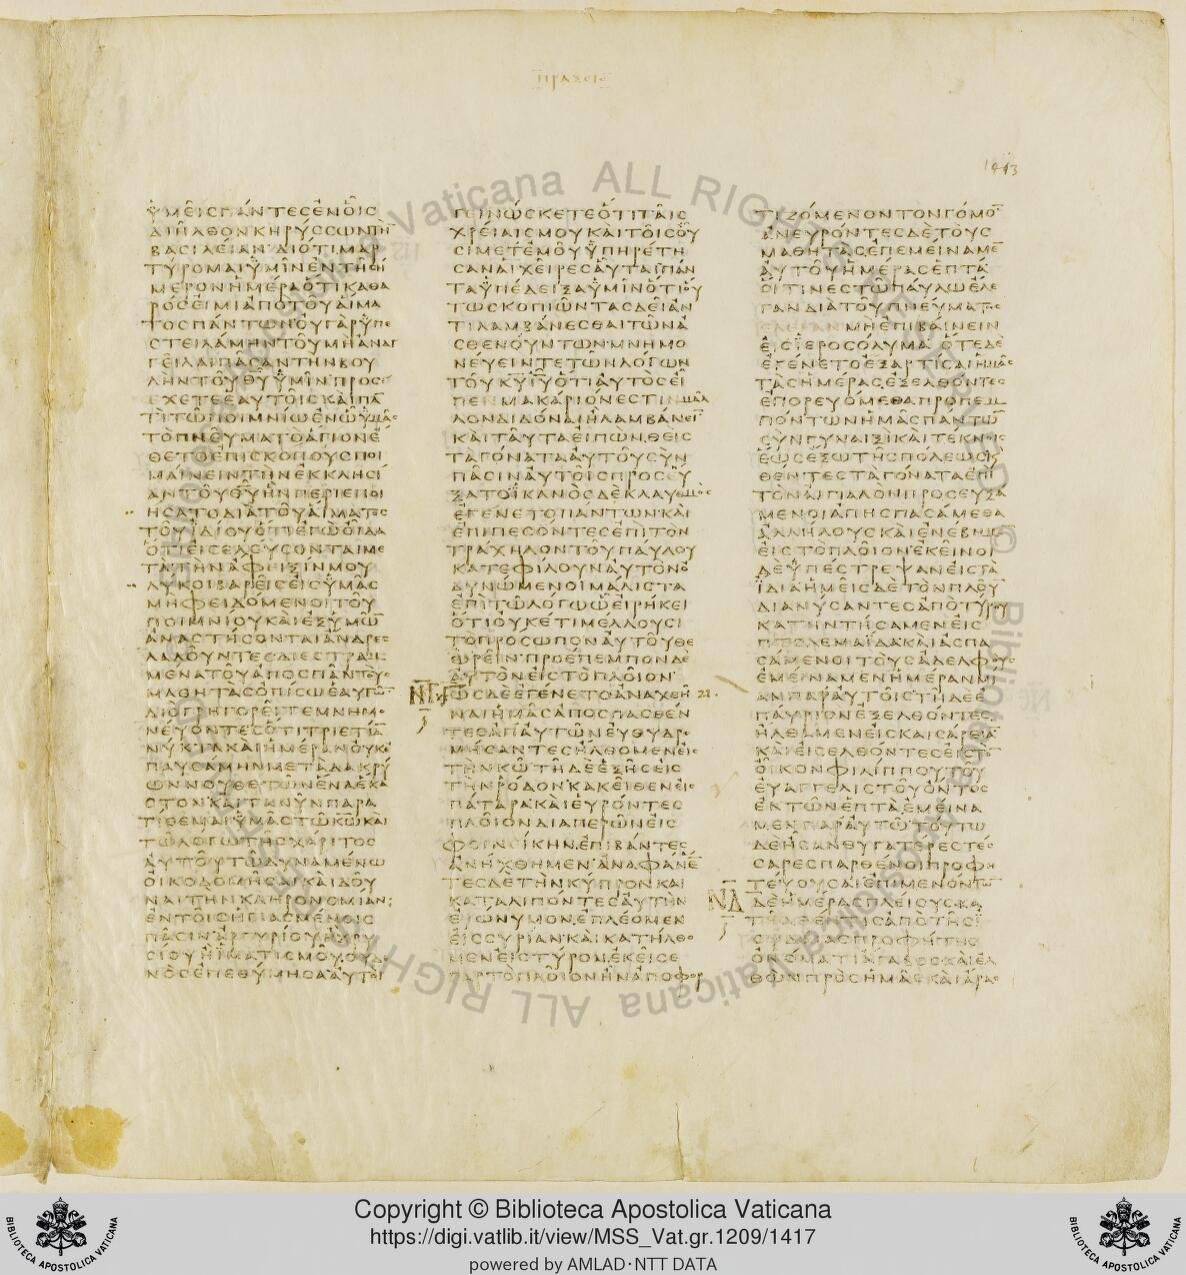 ΠΡΑΞΕΙΣ
1413
ΥΜΕΙΣΠΑΝΤΕΣΕΝΟΙΣ
ΔΙΗΛΘΟΝΚΗΡΥΣΣΩΝΤΗ
ΒΑΣΙΛΕΙΑΝΔΙΟΤΙΜΑΡ
ΤΥΡΟΜΑΙΥΜΙΝΕΝΤΗΣΗ
ΜΕΡΟΝΗΜΕΡΑΟΤΙΚΑΘΑ
ΡΟΣΕΙΜΙΑΠΟΤΟΥΑΙΜΑ
ΤΟΣΠΑΝΤΩΝΟΥΓΑΡΥΠΕ
ΣΤΕΙΛΑΜΗΝΤΟΥΜΗΑΝΑΓ
ΓΕΙΛΑΙΠΑΣΑΝΤΗΝΒΟΥ
ΛΗΝΤΟΥΘΥΥΜΙΝΠΡΟΣ
ΕΧΕΤΕΕΑΥΤΟΙΣΚΑΙΠΑ
ΤΙΤΩΠΟΙΜΝΙΩΕΝΩΥΜΑΣ
ΤΟΠΝΕΥΜΑΤΟΑΓΙΟΝΕ
ΘΕΤΟΕΠΙΣΚΟΠΟΥΣΠΟΙ
ΜΑΙΝΕΙΝΤΗΝΕΚΚΛΗΣΙ
ΑΝΤΟΥΘΥΗΝΠΕΡΙΕΠΟΙ
ΗΣΑΤΟΔΙΑΤΟΥΑΙΜΑΤΟΣ
ΤΟΥΙΔΙΟΥΟΤΙΕΓΩΟΙΔΑ
ΟΤΙΕΙΣΕΛΕΥΣΟΝΤΑΙΜΕ
ΤΑΤΗΝΑΦΕΙΞΙΝΜΟΥ
ΛΥΚΟΙΒΑΡΕΙΣΕΙΣΥΜΑΣ
ΜΗΦΕΙΔΟΜΕΝΟΙΤΟΥ
ΠΟΙΜΝΙΟΥΚΑΙΕΞΥΜΩ
ΑΝΑΣΤΗΣΟΝΤΑΙΑΝΔΡΕΣ
ΛΑΛΟΥΝΤΕΣΔΙΕΣΤΡΑΜ
ΜΕΝΑΤΟΥΑΠΟΣΠΑΝΤΟΥΣ
ΜΑΘΗΤΑΣΟΠΙΣΩΕΑΥΤΩ
ΔΙΟΓΡΗΓΟΡΕΙΤΕΜΝΗΜΟ
ΝΕΥΟΝΤΕΣΟΤΙΤΡΙΕΤΙΑ
ΝΥΚΤΑΚΑΙΗΜΕΡΑΝΟΥΚΕ
ΠΑΥΣΑΜΗΝΜΕΤΑΔΑΚΡΥ
ΩΝΝΟΥΘΕΤΩΝΕΝΑΕΚΑ
ΣΤΟΝΚΑΙΤΑΝΥΝΠΑΡΑ
ΤΙΘΕΜΑΙΥΜΑΣΤΩΚΩΚΑΙ
ΤΩΛΟΓΩΤΗΣΧΑΡΙΤΟΣ
ΑΥΤΟΥΤΩΔΥΝΑΜΕΝΩ
ΟΙΚΟΔΟΜΗΣΑΙΚΑΙΔΟΥ
ΝΑΙΤΗΝΚΛΗΡΟΝΟΜΙΑΝ
ΕΝΤΟΙΣΗΓΙΑΣΜΕΝΟΙΣ
ΠΑΣΙΝΑΡΓΥΡΙΟΥΗΧΡΥ
ΣΙΟΥΗΙΜΑΤΙΣΜΟΥΟΥΔΕ
ΝΟΣΕΠΕΘΥΜΗΣΑΑΥΤΟΙ
ΓΕΙΝΩΣΚΕΤΕΟΤΙΤΑΙΣ
ΧΡΕΙΑΙΣΜΟΥΚΑΙΤΟΙΣΟΥ
ΣΙΜΕΤΕΜΟΥΥΠΗΡΕΤΗ
ΣΑΝΑΙΧΕΙΡΕΣΑΥΤΑΙΠΑΝ
ΤΑΥΠΕΔΕΙΞΑΥΜΙΝΟΤΙΟΥ
ΤΩΣΚΟΠΙΩΝΤΑΣΔΕΙΑΝ
ΤΙΛΑΜΒΑΝΕΣΘΑΙΤΩΝΑ
ΣΘΕΝΟΥΝΤΩΝΜΝΗΜΟ
ΝΕΥΕΙΝΤΕΤΩΝΛΟΓΩΝ
ΤΟΥΚΥΙΥΟΤΙΑΥΤΟΣΕΙ
ΠΕΝΜΑΚΑΡΙΟΝΕΣΤΙΝΜΑΛ
ΛΟΝΔΙΔΟΝΑΙΗΛΑΜΒΑΝΕΙ
ΚΑΙΤΑΥΤΑΕΙΠΩΝΘΕΙΣ
ΤΑΓΟΝΑΤΑΑΥΤΟΥΣΥΝ
ΠΑΣΙΝΑΥΤΟΙΣΠΡΟΣΕΥ
ΞΑΤΟΙΚΑΝΟΣΔΕΚΛΑΥΘΜΟΣ
ΕΓΕΝΕΤΟΠΑΝΤΩΝΚΑΙ
ΕΠΙΠΕΣΟΝΤΕΣΕΠΙΤΟΝ
ΤΡΑΧΗΛΟΝΤΟΥΠΑΥΛΟΥ
ΚΑΤΕΦΙΛΟΥΝΑΥΤΟΝΟ
ΔΥΝΩΜΕΝΟΙΜΑΛΙΣΤΑ
ΕΠΙΤΩΛΟΓΩΩΕΙΡΗΚΕΙ
ΟΤΙΟΥΚΕΤΙΜΕΛΛΟΥΣΙ
ΤΟΠΡΟΣΩΠΟΝΑΥΤΟΥΘΕ
ΩΡΕΙΝΠΡΟΕΠΕΜΠΟΝΔΕ
ΑΥΤΟΝΕΙΣΤΟΠΛΟΙΟΝ
ΩΣΔΕΕΓΕΝΕΤΟΑΝΑΧΘΗ
ΝΑΙΗΜΑΣΑΠΟΣΠΑΣΘΕΝ
ΤΕΣΑΠΑΥΤΩΝΕΥΘΥΔΡΟ
ΜΗΣΑΝΤΕΣΗΛΘΟΜΕΝΕΙΣ
ΤΗΝΚΩΤΗΔΕΕΞΗΣΕΙΣ
ΤΗΝΡΟΔΟΝΚΑΚΕΙΘΕΝΕΙΣ
ΠΑΤΑΡΑΚΑΙΕΥΡΟΝΤΕΣ
ΠΛΟΙΟΝΔΙΑΠΕΡΩΝΕΙΣ
ΦΟΙΝΕΙΚΗΝΕΠΙΒΑΝΤΕΣ
ΑΝΗΧΘΗΜΕΝΑΝΑΦΑΝΕ
ΤΕΣΔΕΤΗΝΚΥΠΡΟΝΚΑΙ
ΚΑΤΑΛΙΠΟΝΤΕΣΑΥΤΗΝ
ΕΥΩΝΥΜΟΝΕΠΛΕΟΜΕΝ
ΕΙΣΣΥΡΙΑΝΚΑΙΚΑΤΗΛΘΟ
ΜΕΝΕΙΣΤΥΡΟΝΕΚΕΙΣΕ
ΓΑΡΤΟΠΛΟΙΟΝΗΝΑΠΟΦΟΡ
ΤΙΖΟΜΕΝΟΝΤΟΝΓΟΜΟ
ΑΝΕΥΡΟΝΤΕΣΔΕΤΟΥΣ
ΜΑΘΗΤΑΣΕΠΕΜΕΙΝΑΜΕ
ΑΥΤΟΥΗΜΕΡΑΣΕΠΤΑ
ΟΙΤΙΝΕΣΤΩΠΑΥΛΩΕΛΕ
ΓΑΝΔΙΑΤΟΥΠΝΕΥΜΑΤΟΣ
ΜΗΕΠΙΒΑΙΝΕΙΝ
ΕΙΣΙΕΡΟΣΟΛΥΜΑΟΤΕΔΕ
ΕΓΕΝΕΤΟΕΞΑΡΤΙΣΑΙΗΜΑΣ
ΤΑΣΗΜΕΡΑΣΕΞΕΛΘΟΝΤΕΣ
ΕΠΟΡΕΥΟΜΕΘΑΠΡΟΠΕΜ
ΠΟΝΤΩΝΗΜΑΣΠΑΝΤΩ
ΣΥΝΓΥΝΑΙΞΙΚΑΙΤΕΚΝΟΙΣ
ΕΩΣΕΞΩΤΗΣΠΟΛΕΩΣΚ
ΘΕΝΤΕΣΤΑΓΟΝΑΤΑΕΠΙ
ΤΟΝΑΙΓΙΑΛΟΝΠΡΟΣΕΥΞΑ
ΜΕΝΟΙΑΠΗΣΠΑΣΑΜΕΘΑ
ΑΛΛΗΛΟΥΣΚΑΙΕΝΕΒΗΜΕ
ΕΙΣΤΟΠΛΟΙΟΝΕΚΕΙΝΟΙ
ΔΕΥΠΕΣΤΡΕΨΑΝΕΙΣΤΑ
ΙΔΙΑΗΜΕΙΣΔΕΤΟΝΠΛΟΥ
ΔΙΑΝΥΣΑΝΤΕΣΑΠΟΤΥΡΟΥ
ΚΑΤΗΝΤΗΣΑΜΕΝΕΙΣ
ΠΤΟΛΕΜΑΙΔΑΚΑΙΑΣΠΑ
ΣΑΜΕΝΟΙΤΟΥΣΑΔΕΛΦΟΥΣ
ΕΜΕΙΝΑΜΕΝΗΜΕΡΑΝΜΙ
ΑΝΠΑΡΑΥΤΟΙΣΤΗΔΕΕ
ΠΑΥΡΙΟΝΕΞΕΛΘΟΝΤΕΣ
ΗΛΘΑΜΕΝΕΙΣΚΑΙΣΑΡΕΙΑ
ΚΑΙΕΙΣΕΛΘΟΝΤΕΣΕΙΣΤ
ΟΙΚΟΝΦΙΛΙΠΠΟΥΤΟΥ
ΕΥΑΓΓΕΛΙΣΤΟΥΟΝΤΟΣ
ΕΚΤΩΝΕΠΤΑΕΜΕΙΝΑ
ΜΕΝΠΑΡΑΥΤΩΤΟΥΤΩ
ΔΕΗΣΑΝΘΥΓΑΤΕΡΕΣΤΕΣ
ΣΑΡΕΣΠΑΡΘΕΝΟΙΠΡΟΦΗ
ΤΕΥΟΥΣΑΙΕΠΙΜΕΝΟΝΤΩ
ΔΕΗΜΕΡΑΣΠΛΕΙΟΥΣΚΑ
ΤΗΛΘΕΝΤΙΣΑΠΟΤΗΣΙ
ΟΥΔΑΙΑΣΠΡΟΦΗΤΗΣ
ΟΝΟΜΑΤΙΑΓΑΒΟΣΚΑΙΕΛ
ΘΩΝΠΡΟΣΗΜΑΣΚΑΙΑΡΑΣ
Copyright © Biblioteca Apostolica Vaticana
https://digi.vatlib.it/view/MSS_Vat.gr.1209/1417
powered by AMLAD·NTT DATA